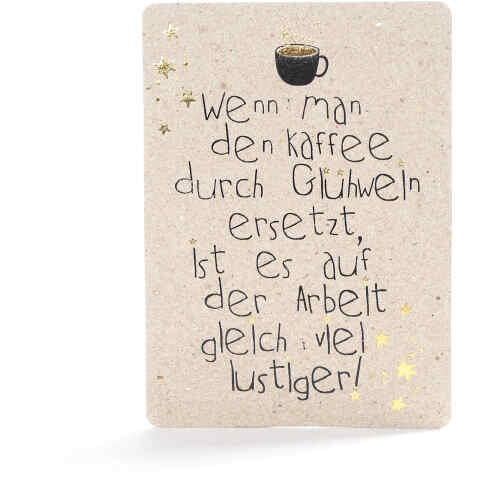 Wenn man
den Kaffee
durch Glühwein
ersetzt,
ist es auf
der Arbeit
gleich viel
lustiger!